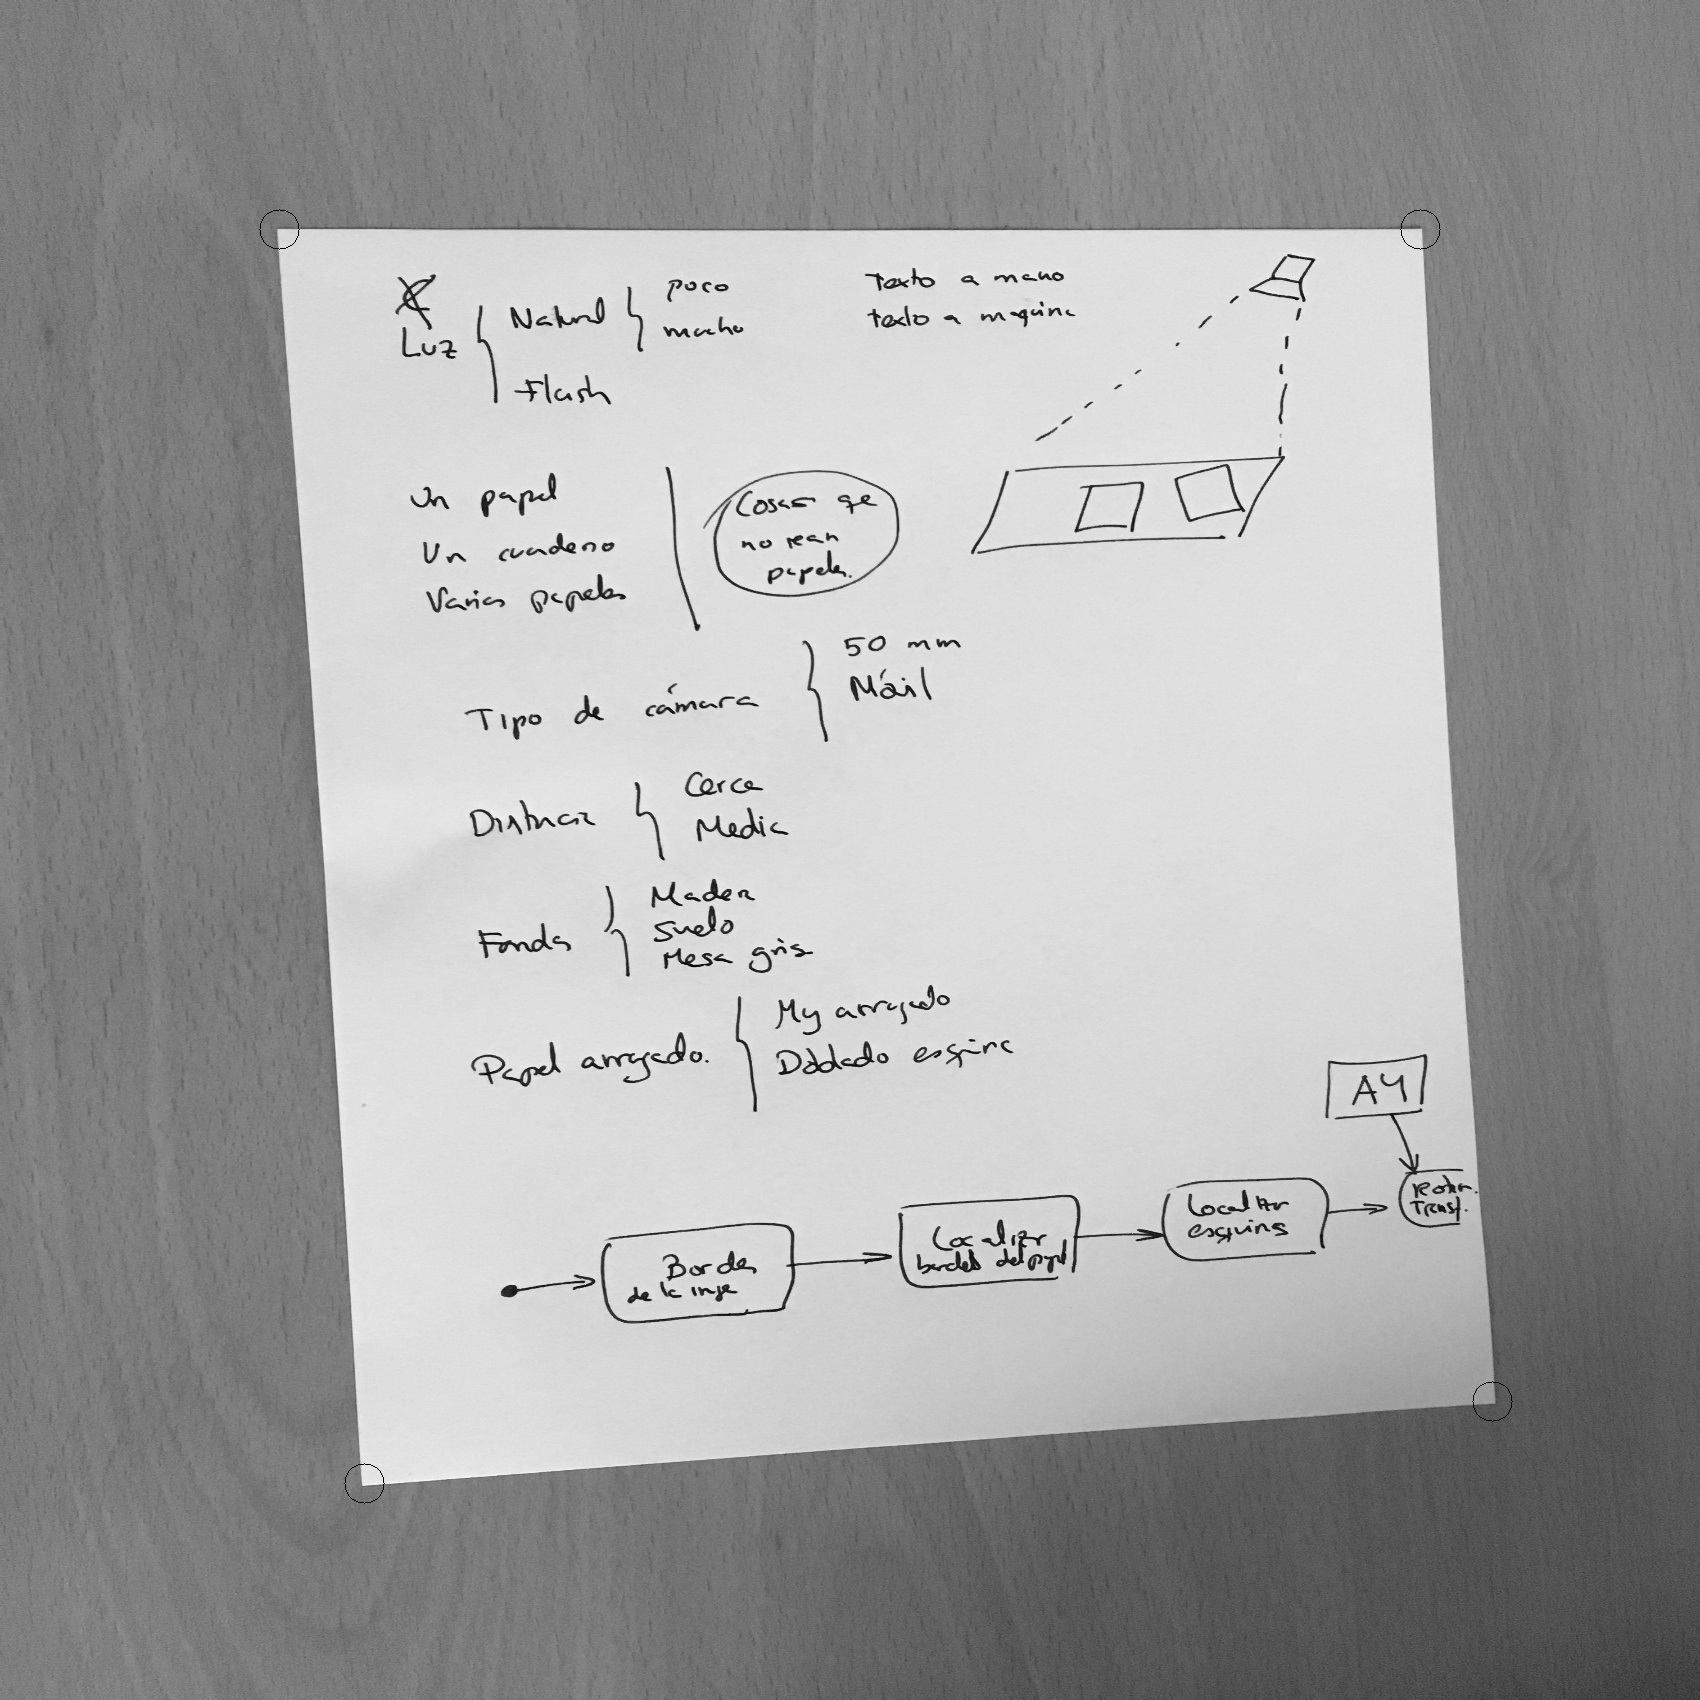 Luz
Natural
poco
mucho
Flash
Texto a mano
texto a maquina
Un papel
Un cuaderno
Varios papeles
Cosas que
no sean
papeles.
Tipo de cámara
50 mm
Móvil
Distancia
Cerca
Media
Fondo
Madera
Suelo
Mesa gris
Papel arrugado.
Muy arrugado
Doblado esquina
A4
Bordes
de la
Localizar
bordes del papel
Localizar
esquinas
Transf.